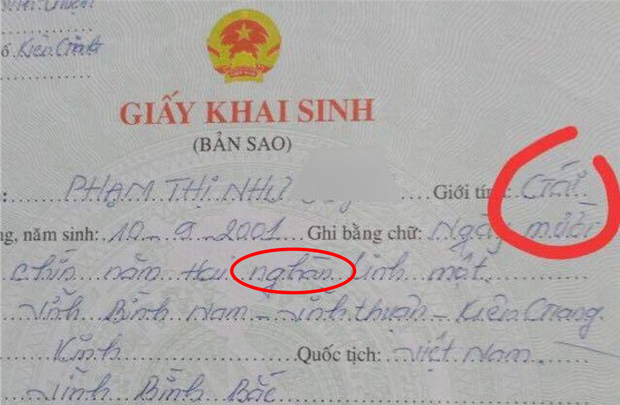 ố Kiên Giang
GIẤY KHAI SINH
(BẢN SAO)
PHẠM THỊ NHƯ Giới tính: Gái
ng, năm sinh: 10-9-2001 Ghi bằng chữ: Ngày mười
chín năm Hai nghàn linh một
Vĩnh Bình Nam - Vĩnh Thuận - Kiên Giang
Kinh Quốc tịch: Việt Nam
Vĩnh Bình Bắc